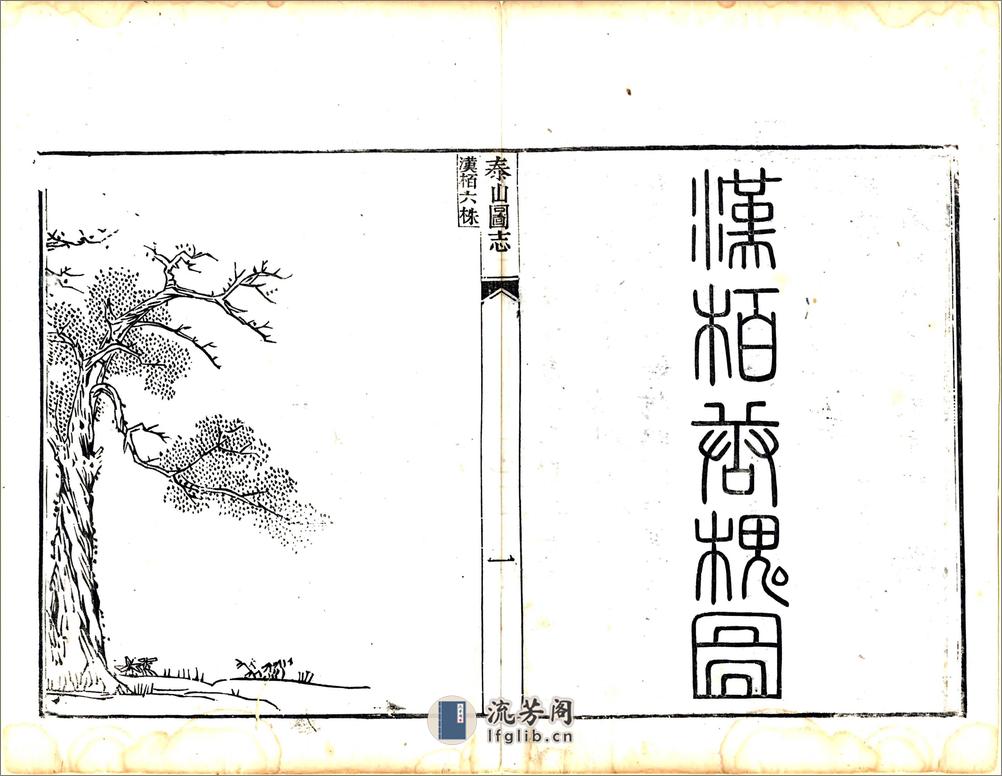 漢栢唐槐圖
泰山圖志
漢栢六株
一
流芳阁
lfglib.cn